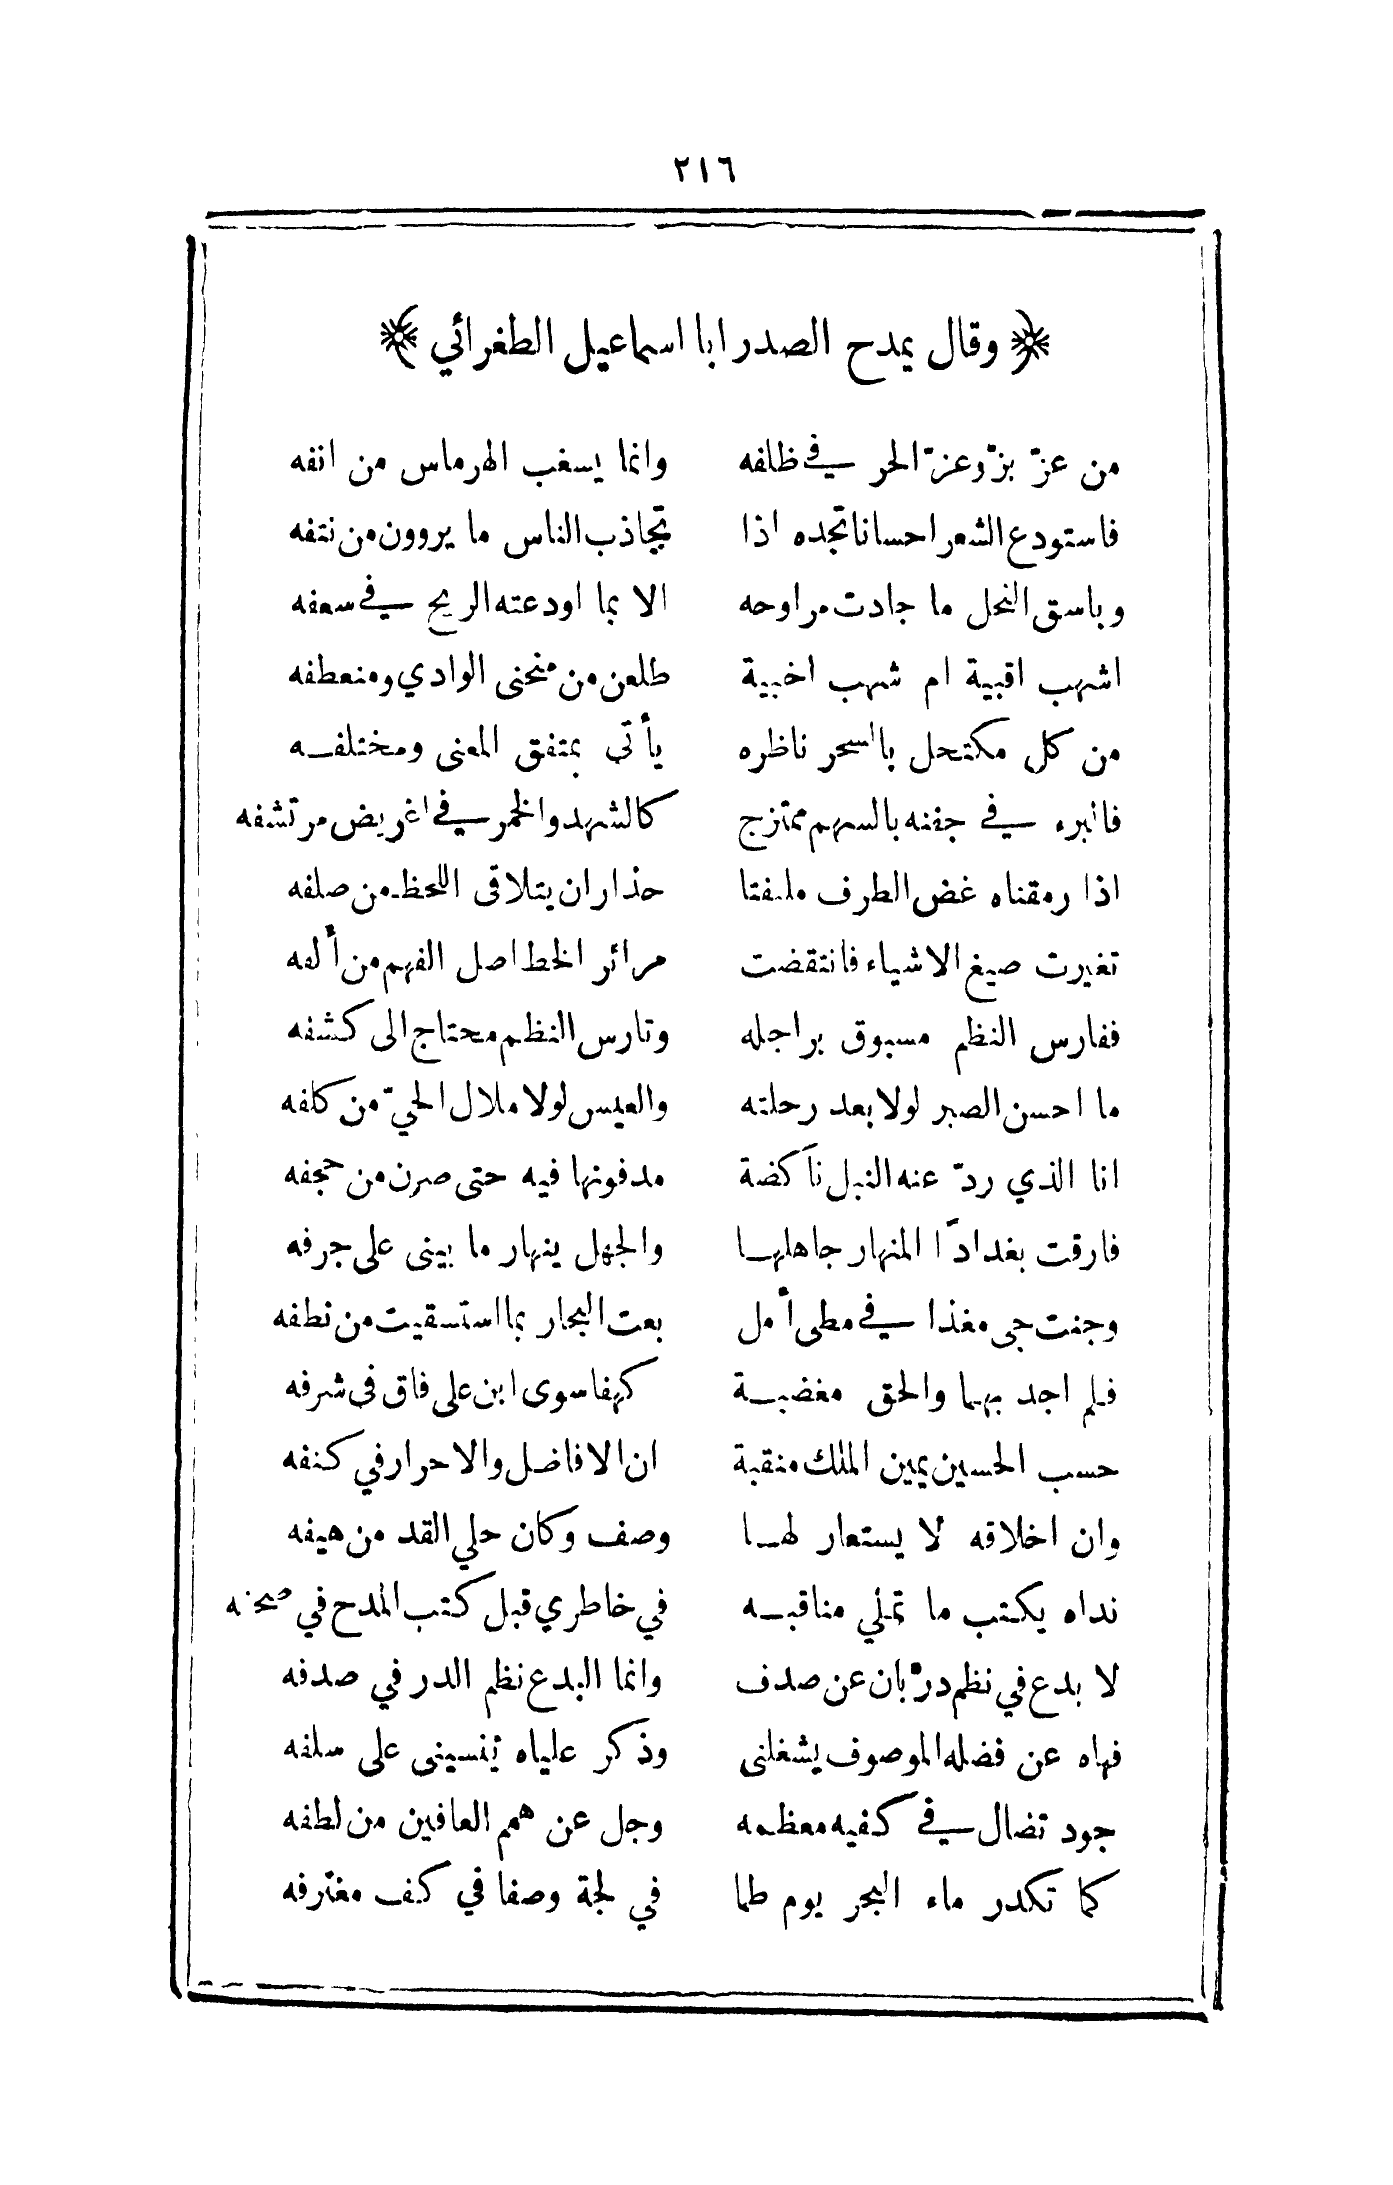 ٢١٦
﴿ وقال يمدح الصدر ابا اسماعيل الطغرائي ﴾
من عزّ بزّ وعزّ الحر في ظلفه وانما يسغب الهرماس من انفه
فاستودع الشعر احسانا تجده اذا تجاذب الناس ما يروون من نتفه
وباسق النحل ما جادت مراوحه الا بما اودعته الريح في سعفه
اشهب اقبية ام شهب اخبية طلعن من منحنى الوادي ومنعطفه
من كل مكتحل بالسحر ناظره يأتي بمتفق المعنى ومختلفه
فانبره في جفنه بالسهم ممتزج كالشهد والخمر في اغريض مرتشفه
اذا رمقناه غض الطرف ملتفتا حذار ان يتلاقى اللحظ من صلفه
تغيرت صيغ الاشياء فانتقضت مرائر الخط اصل الفهم من ألفه
ففارس النظم مسبوق براجله وتارس النظم محتاج الى كشفه
ما احسن الصبر لولا بعد رحلته والعيس لولا ملال الحيّ من كلفه
انا الذي ردّ عنه النبل ناكضة مدفونها فيه حتى صرن من حجفه
فارقت بغداد آ المنهار جاهلها والجهل ينهار ما يبنى على جرفه
وجئت جي مغذا في مطى أمل بعت البحار بما استسقيت من نطفه
فلم اجد بهما والحق مغضبة كهفا سوى ابن على فاق في شرفه
حسب الحسين يمين الملك منقبة ان الافاضل والاحرار في كنفه
وان اخلاقه لا يستعار لها وصف وكان حلي القد من هيفه
نداه يكتب ما تملي مناقبه في خاطري قبل كتب المدح في صحفه
لا بدع في نظم درّ بان عن صدف وانما البدع نظم الدر في صدفه
فهاه عن فضله الموصوف يشغلنى وذكر علياه ينسينى على سلفه
جود تضال في كفيه معظمه وجل عن همم العافين من لطفه
كما تكدر ماء البحر يوم طما في لجة وصفا في كف مغترفه